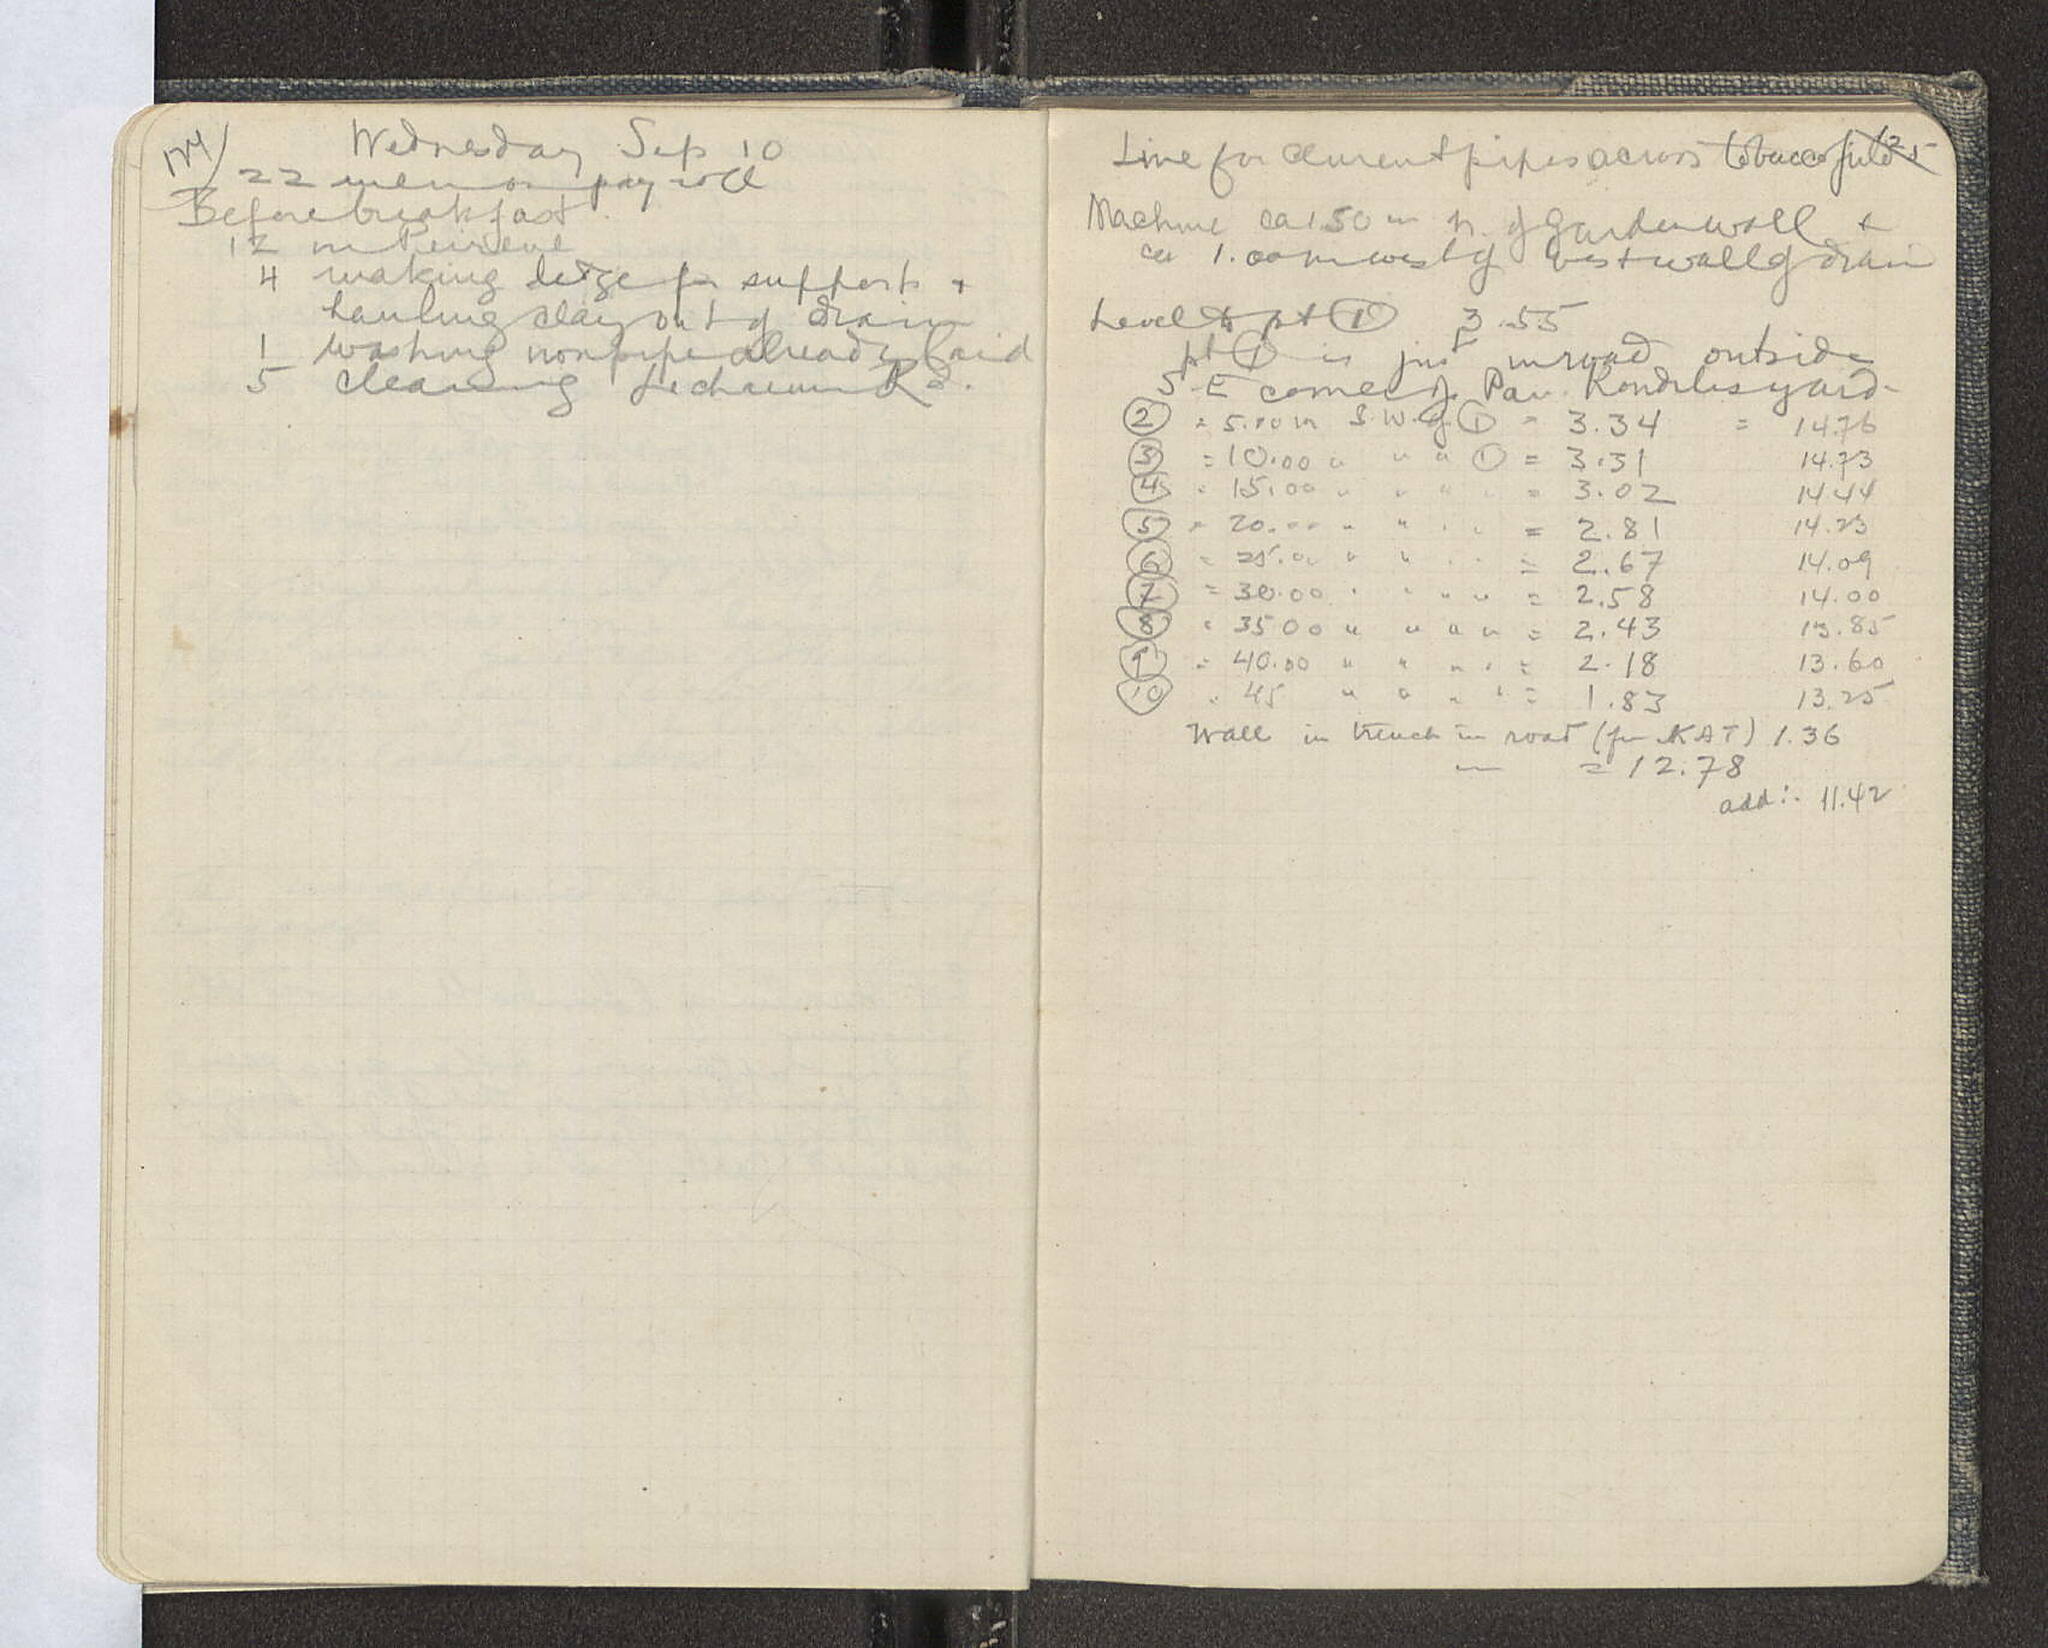 124
Wednesday Sep 10
22 men on pay roll
Before breakfast.
12 in Peirene
4 making ledge for supports +
hauling clay out of drain
1 washing non pipe already laid
5 cleaning Lechaeum Rd.
125
Line for cement pipes across tobacco field
Machine ca 1.50 m n. of garden wall +
ca 1.00 m west of west wall of drain
Level to pt ① 3.55
pt ① is just in road outside
S-E corner of Pav. Kondilis yard-
② = 5.00 m S.W. of ① = 3.34 = 14.76
③ = 10.00 " " " ① = 3.31 14.73
④ " 15.00 " " " " = 3.02 14.44
⑤ " 20.00 " " " " = 2.81 14.23
⑥ = 25.00 " " " " = 2.67 14.09
⑦ = 30.00 " " " " = 2.58 14.00
⑧ " 35 00 " " " " = 2.43 13.85
⑨ = 40.00 " " " " = 2.18 13.60
⑩ " 45 " " " " = 1.83 13.25
Wall in trench in road (for KAT) 1.36
— = 12.78
add :. 11.42